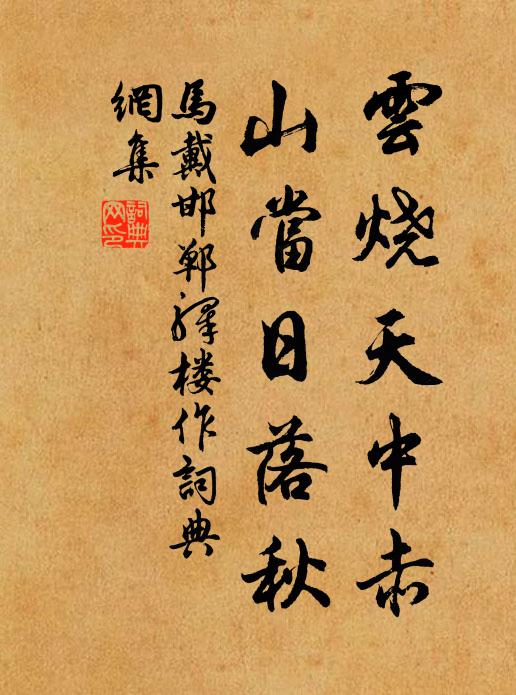 雲烧天中赤
山當日落秋
馬戴邯郸驛楼作詞典
網集
詞典
网印